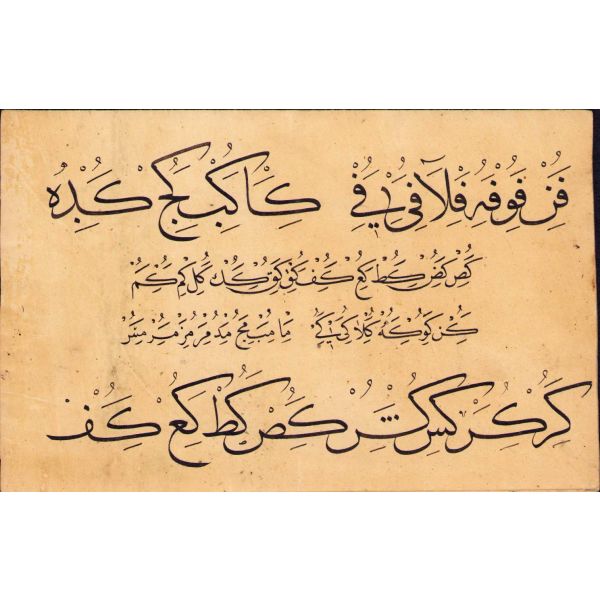 فن فو فه فلا فى فے كا كب كج كد
كص كط كع كف كق كك كل كم
كن كو كه كلا كى كے ما مب مج مد مر مر
كر كر كس كص كط كع كف